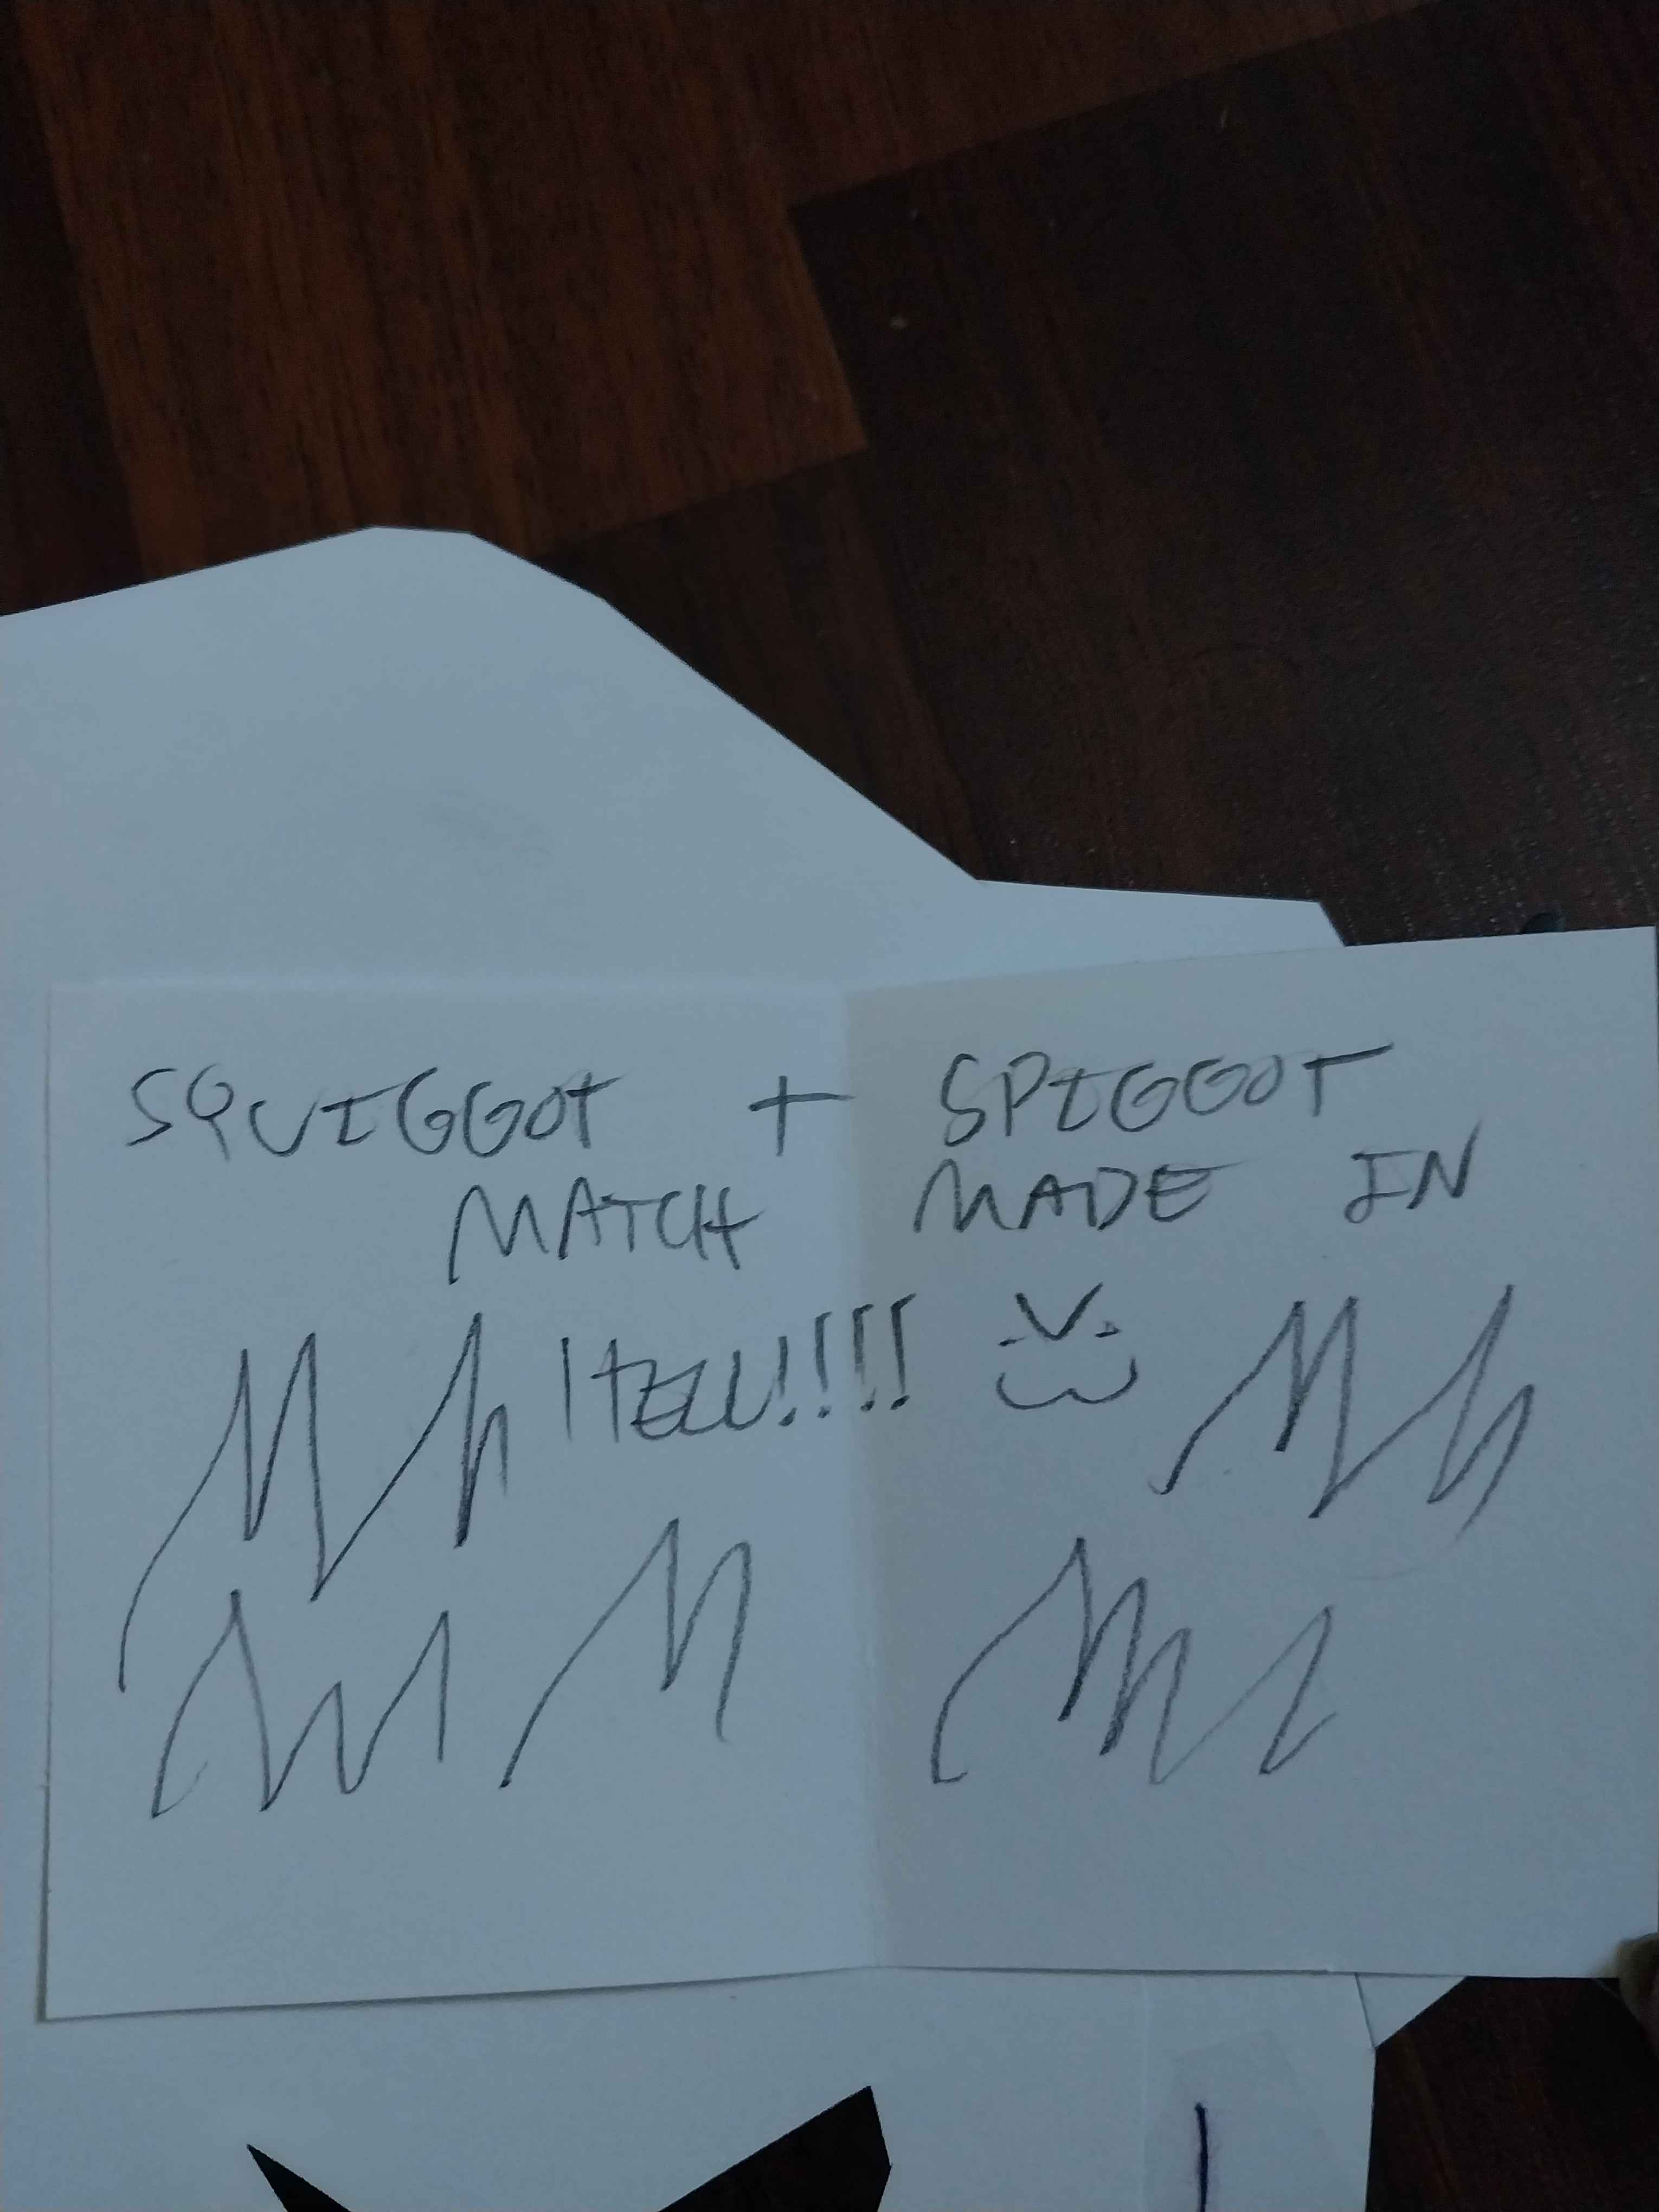 SQUIGGOT + SPIGGOT
MATCH MADE IN
HELL!!!!